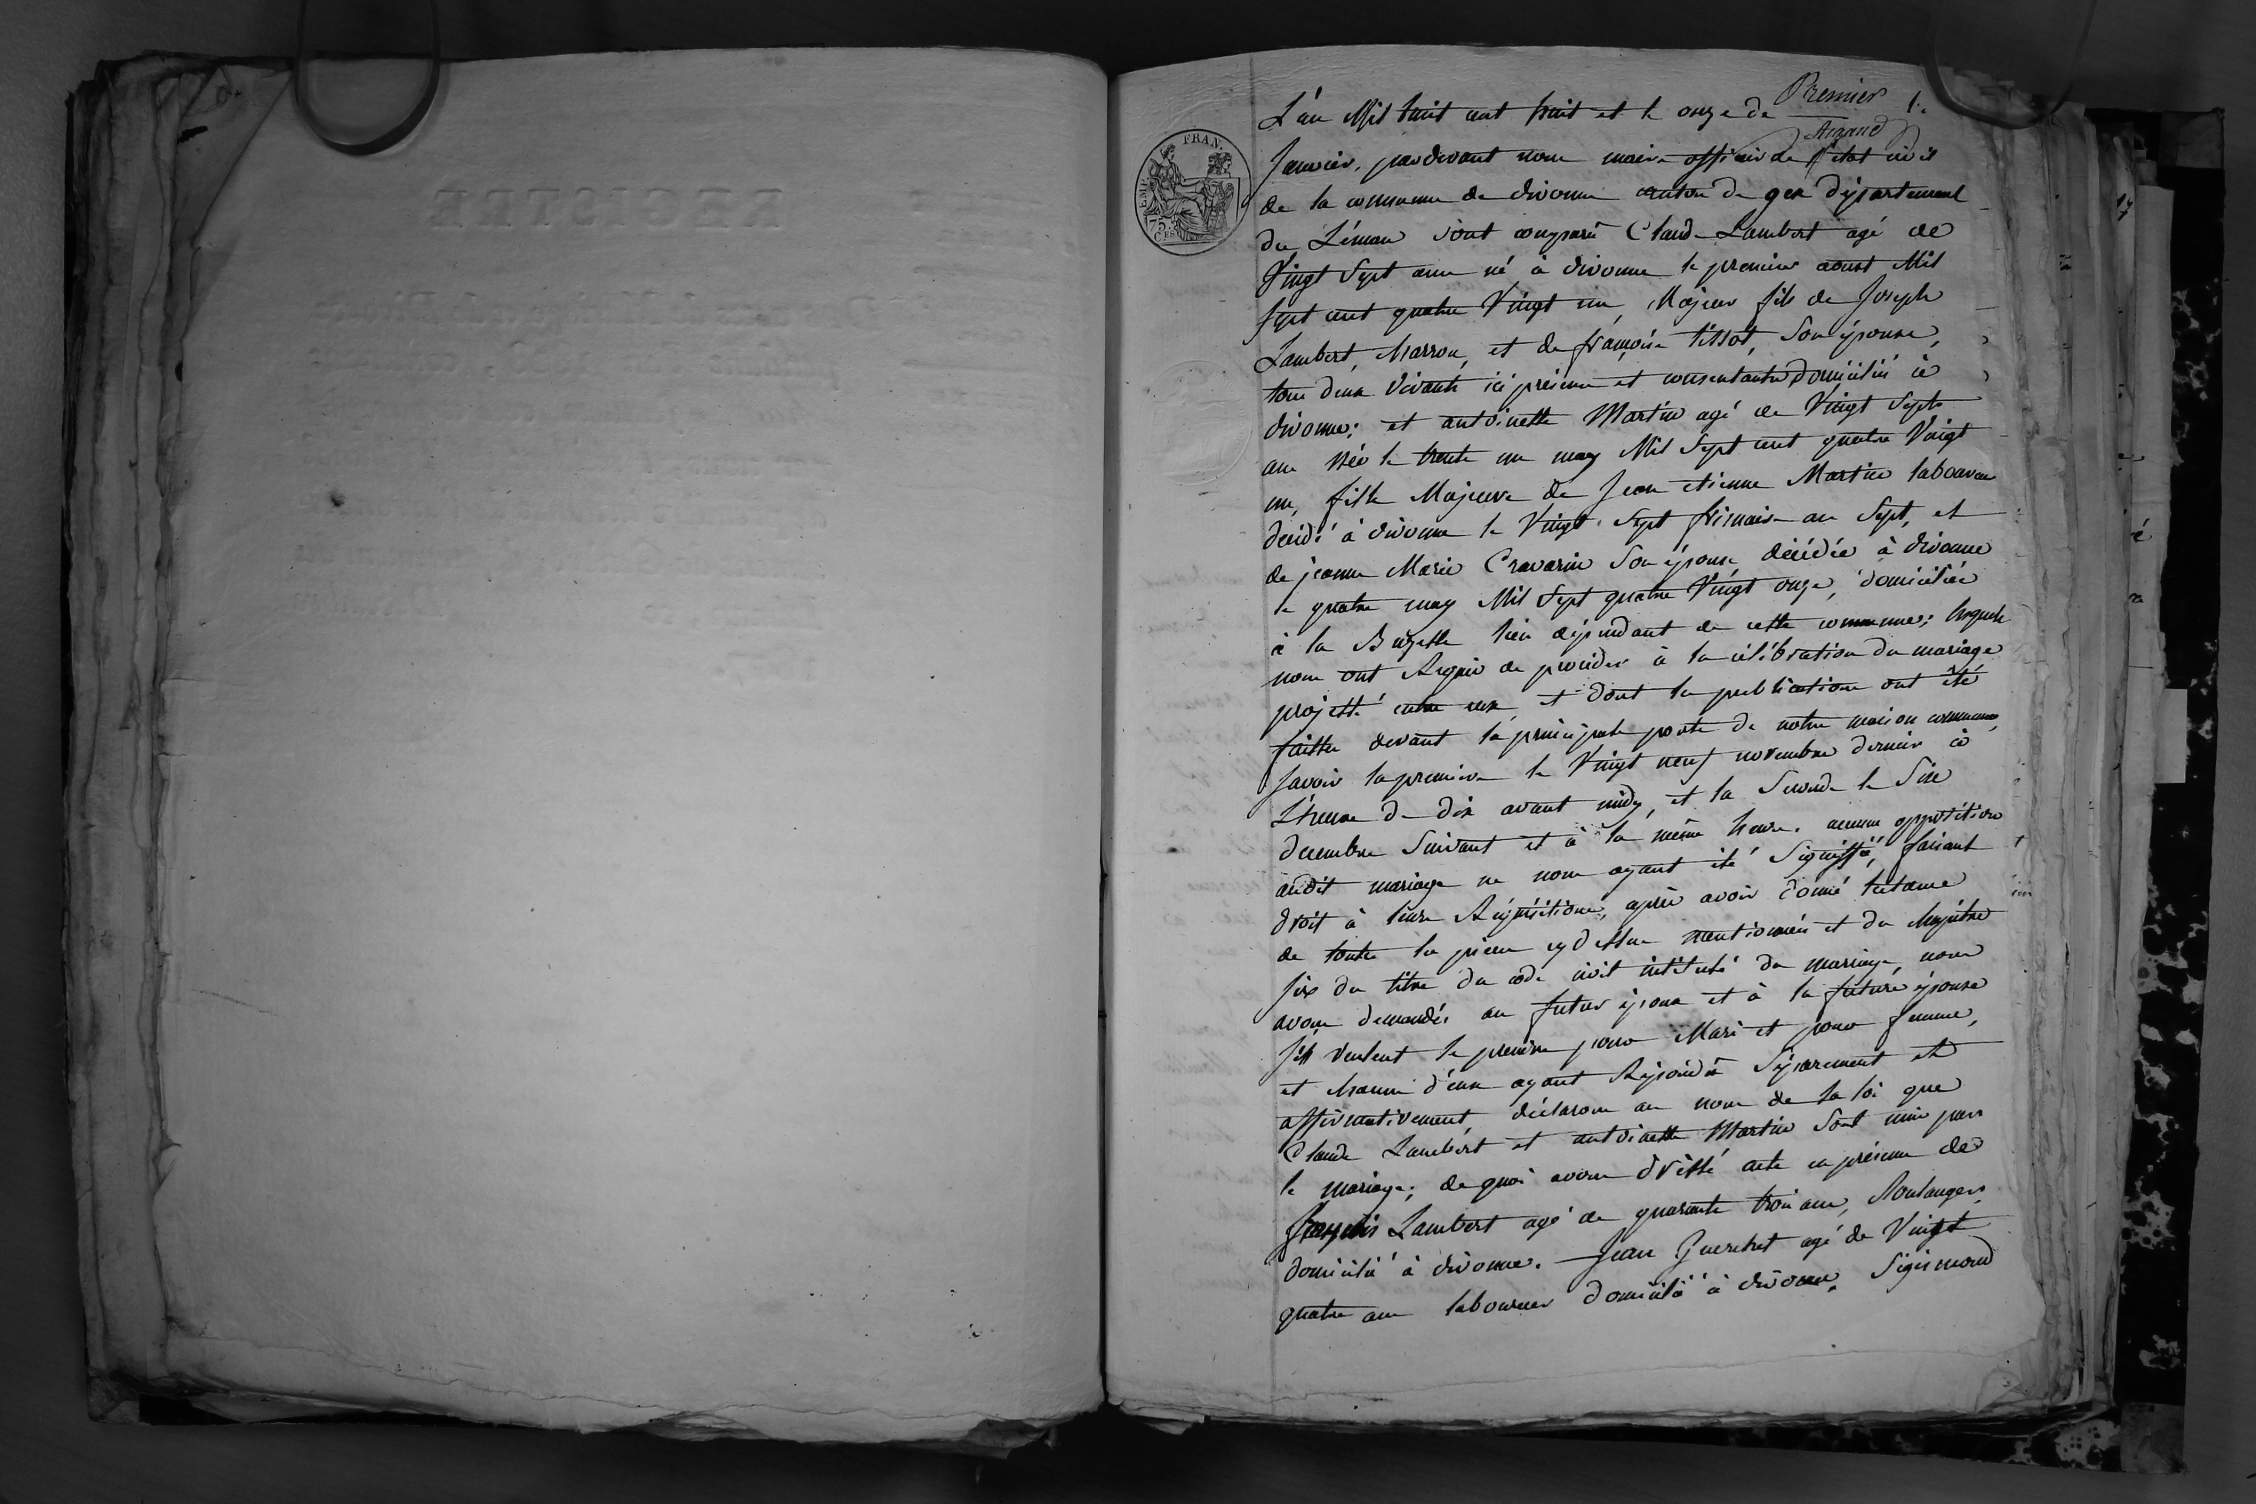 Premier 1.
L'an Mil huit cent huit et le onze de
Janvier, pardevant nous maire officier de l'état civil
de la commune de divonne canton de gex département
du Léman sont comparu Claude Lambert agé de
Vingt Sept ans né à divonne le premier aoust Mil
Sept cent quatre Vingt un, Majeur fils de Joseph
Lambert, Marron, et de françoise tissot, Son épouse,
tous deux Vivants ici présens et consentants domiciliés à
divonne; et antoinette Martin agé de Vingt Sept
ans Née le trente un may Mil Sept cent quatre Vingt
un, fille Majeure de Jean etienne Martin laboureur
décédé à divonne le Vingt Sept frimaire an Sept, et
de jeanne Marie Cravarin Son épouse, décédée à divonne
le quatre may Mil Sept quatre Vingt onze, domiciliée
à la Buzette lieu dépendant de cette commune; lesquels
nous ont Requis de procéder à la célébration du mariage
projetté entre eux, et dont les publications ont été
faittes devant la principale porte de notre maison commune,
Savoir la premiere le Vingt neuf novembre dernier à
L'heure de dix avant midy, et la Seconde le Six
decembre Suivant et à la même heure. aucune opposition
audit mariage ne nous ayant été Signiffié, faisant
droit à leurs Réquisitions, après avoir donné lecture
de toutes les pièces cy dessus mentionnées et du chapitre
Six du titre du code civil intitulé du mariage, nous
avons demandés au futur époux et à la future épouse
S'ils veulent se prendre pour Mari et pour femme,
et chacun d'eux ayant Répondu Séparement et
affirmativement, déclarons au nom de la loi que
Claude Lambert et antoinette Martin Sont unis par
le mariage; de quoi avons dréssé acte en présence de
françois Lambert agé de quarante trois ans, Boulanger
domicilié à divonne. Jean Guerchet agé de Vingt
quatre ans laboureur domicilié à divonne, Sigismond
EMP. FRAN.
75.
REGISTRE